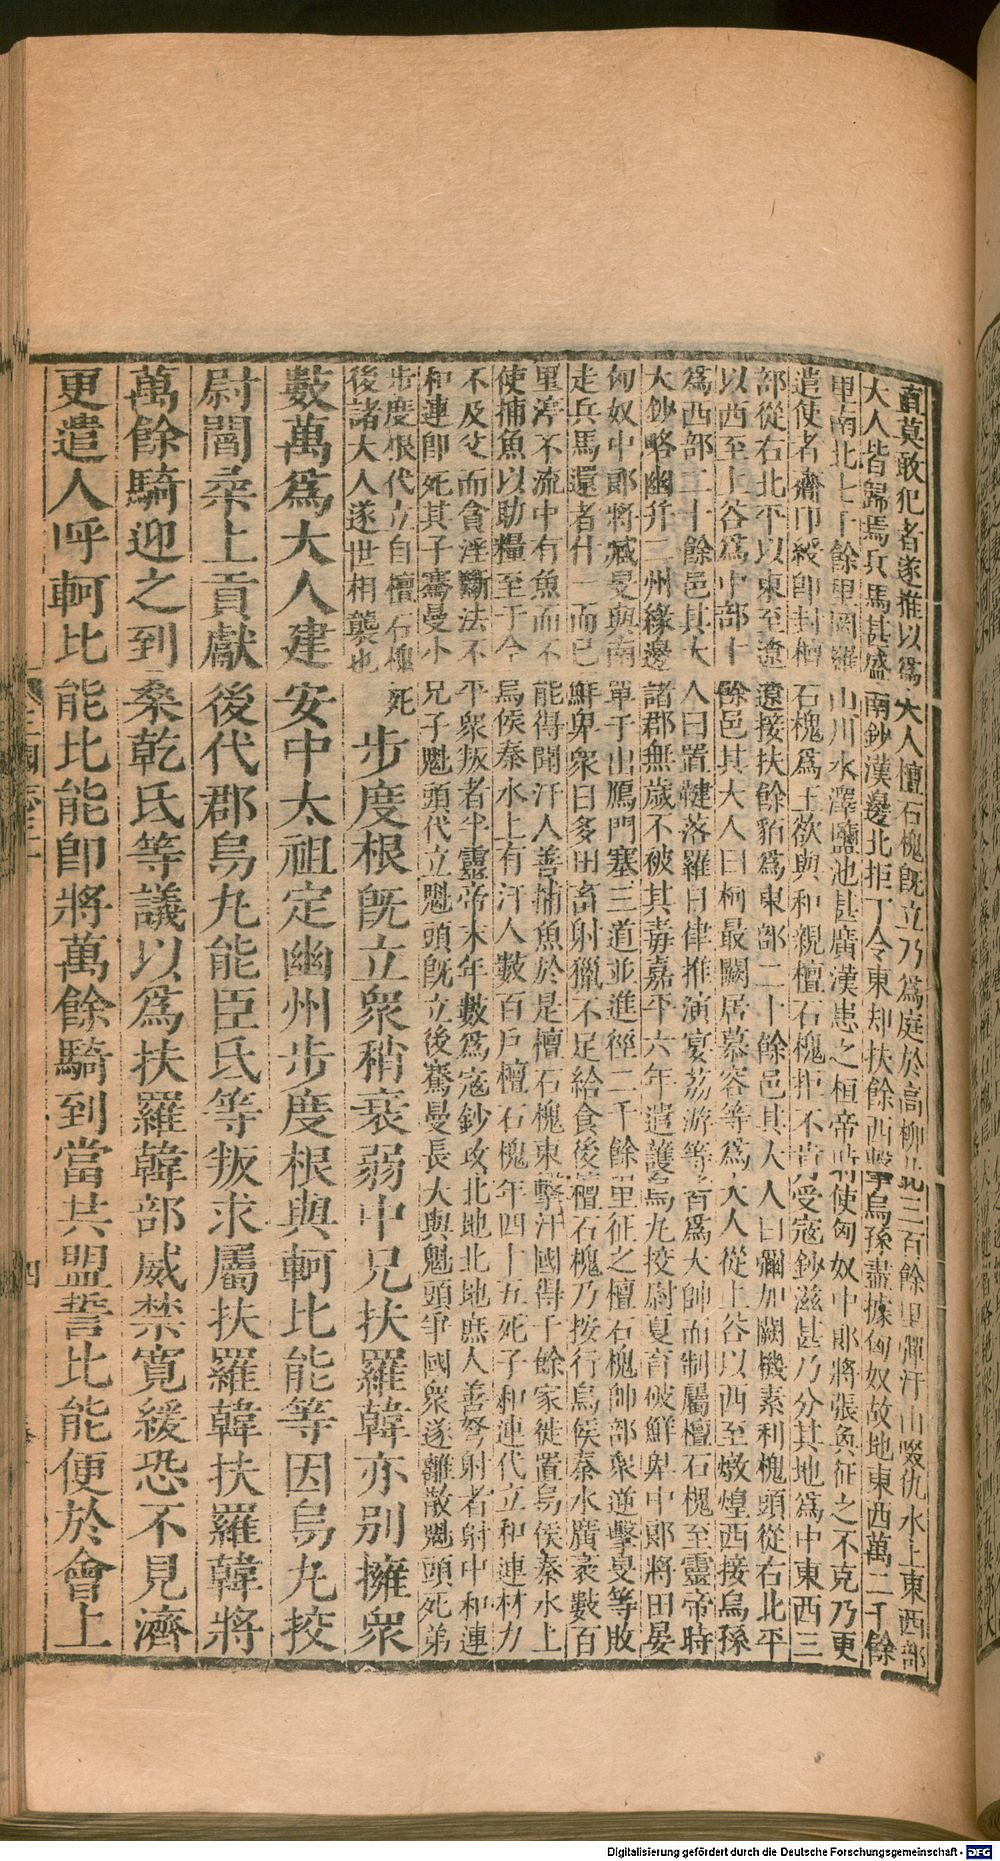 直莫敢犯者遂推以爲大人檀石槐旣立乃爲庭於高柳北三百餘里彈汗山啜仇水上東西部
大人皆歸焉兵馬甚盛南鈔漢邊北拒丁令東却扶餘西擊烏孫盡據匈奴故地東西萬二千餘
里南北七千餘里罔羅山川水澤鹽池甚廣漢患之桓帝時使匈奴中郎將張奐征之不克乃更
遣使者齎印綬卽封檀石槐爲王欲與和親檀石槐拒不肯受寇鈔滋甚乃分其地爲中東西三
部從右北平以東至遼遼接扶餘貊爲東部二十餘邑其大人曰彌加闕機素利槐頭從右北平
以西至上谷爲中部十餘邑其大人曰柯最闕居慕容等爲大人從上谷以西至燉煌西接烏孫
爲西部二十餘邑其大人曰置鞬落羅日律推演宴荔游等皆爲大帥而制屬檀石槐至靈帝時
大鈔略幽并二州緣邊諸郡無歲不被其毒嘉平六年遣護烏丸挍尉夏育破鮮卑中郎將田晏
匈奴中郎將臧旻與南單于出鴈門塞三道並進徑二千餘里征之檀石槐帥部衆逆擊旻等敗
走兵馬還者什一而已鮮卑衆日多田畜射獵不足給食後檀石槐乃按行烏侯秦水廣袤數百
里渟不流中有魚而不能得聞汗人善捕魚於是檀石槐東擊汗國得千餘家徙置烏侯秦水上
使捕魚以助糧至于今烏侯秦水上有汗人數百戶檀石槐年四十五死子和連代立和連材力
不及父而貪淫斷法不平衆叛者半靈帝末年數爲寇鈔攻北地北地庶人善弩射者射中和連
和連卽死其子騫曼小兄子魁頭代立魁頭旣立後騫曼長大與魁頭爭國衆遂離散魁頭死弟
步度根代立自檀石槐死
後諸大人遂世相襲也
步度根旣立衆稍衰弱中兄扶羅韓亦別擁衆
數萬爲大人建安中太祖定幽州步度根與軻比能等因烏丸挍
尉閻柔上貢獻後代郡烏丸能臣氐等叛求屬扶羅韓扶羅韓將
萬餘騎迎之到桑乾氐等議以爲扶羅韓部威禁寬緩恐不見濟
更遣人呼軻比能比能卽將萬餘騎到當共盟誓比能便於會上
三國志三十
四
Digitalisierung gefördert durch die Deutsche Forschungsgemeinschaft - DFG